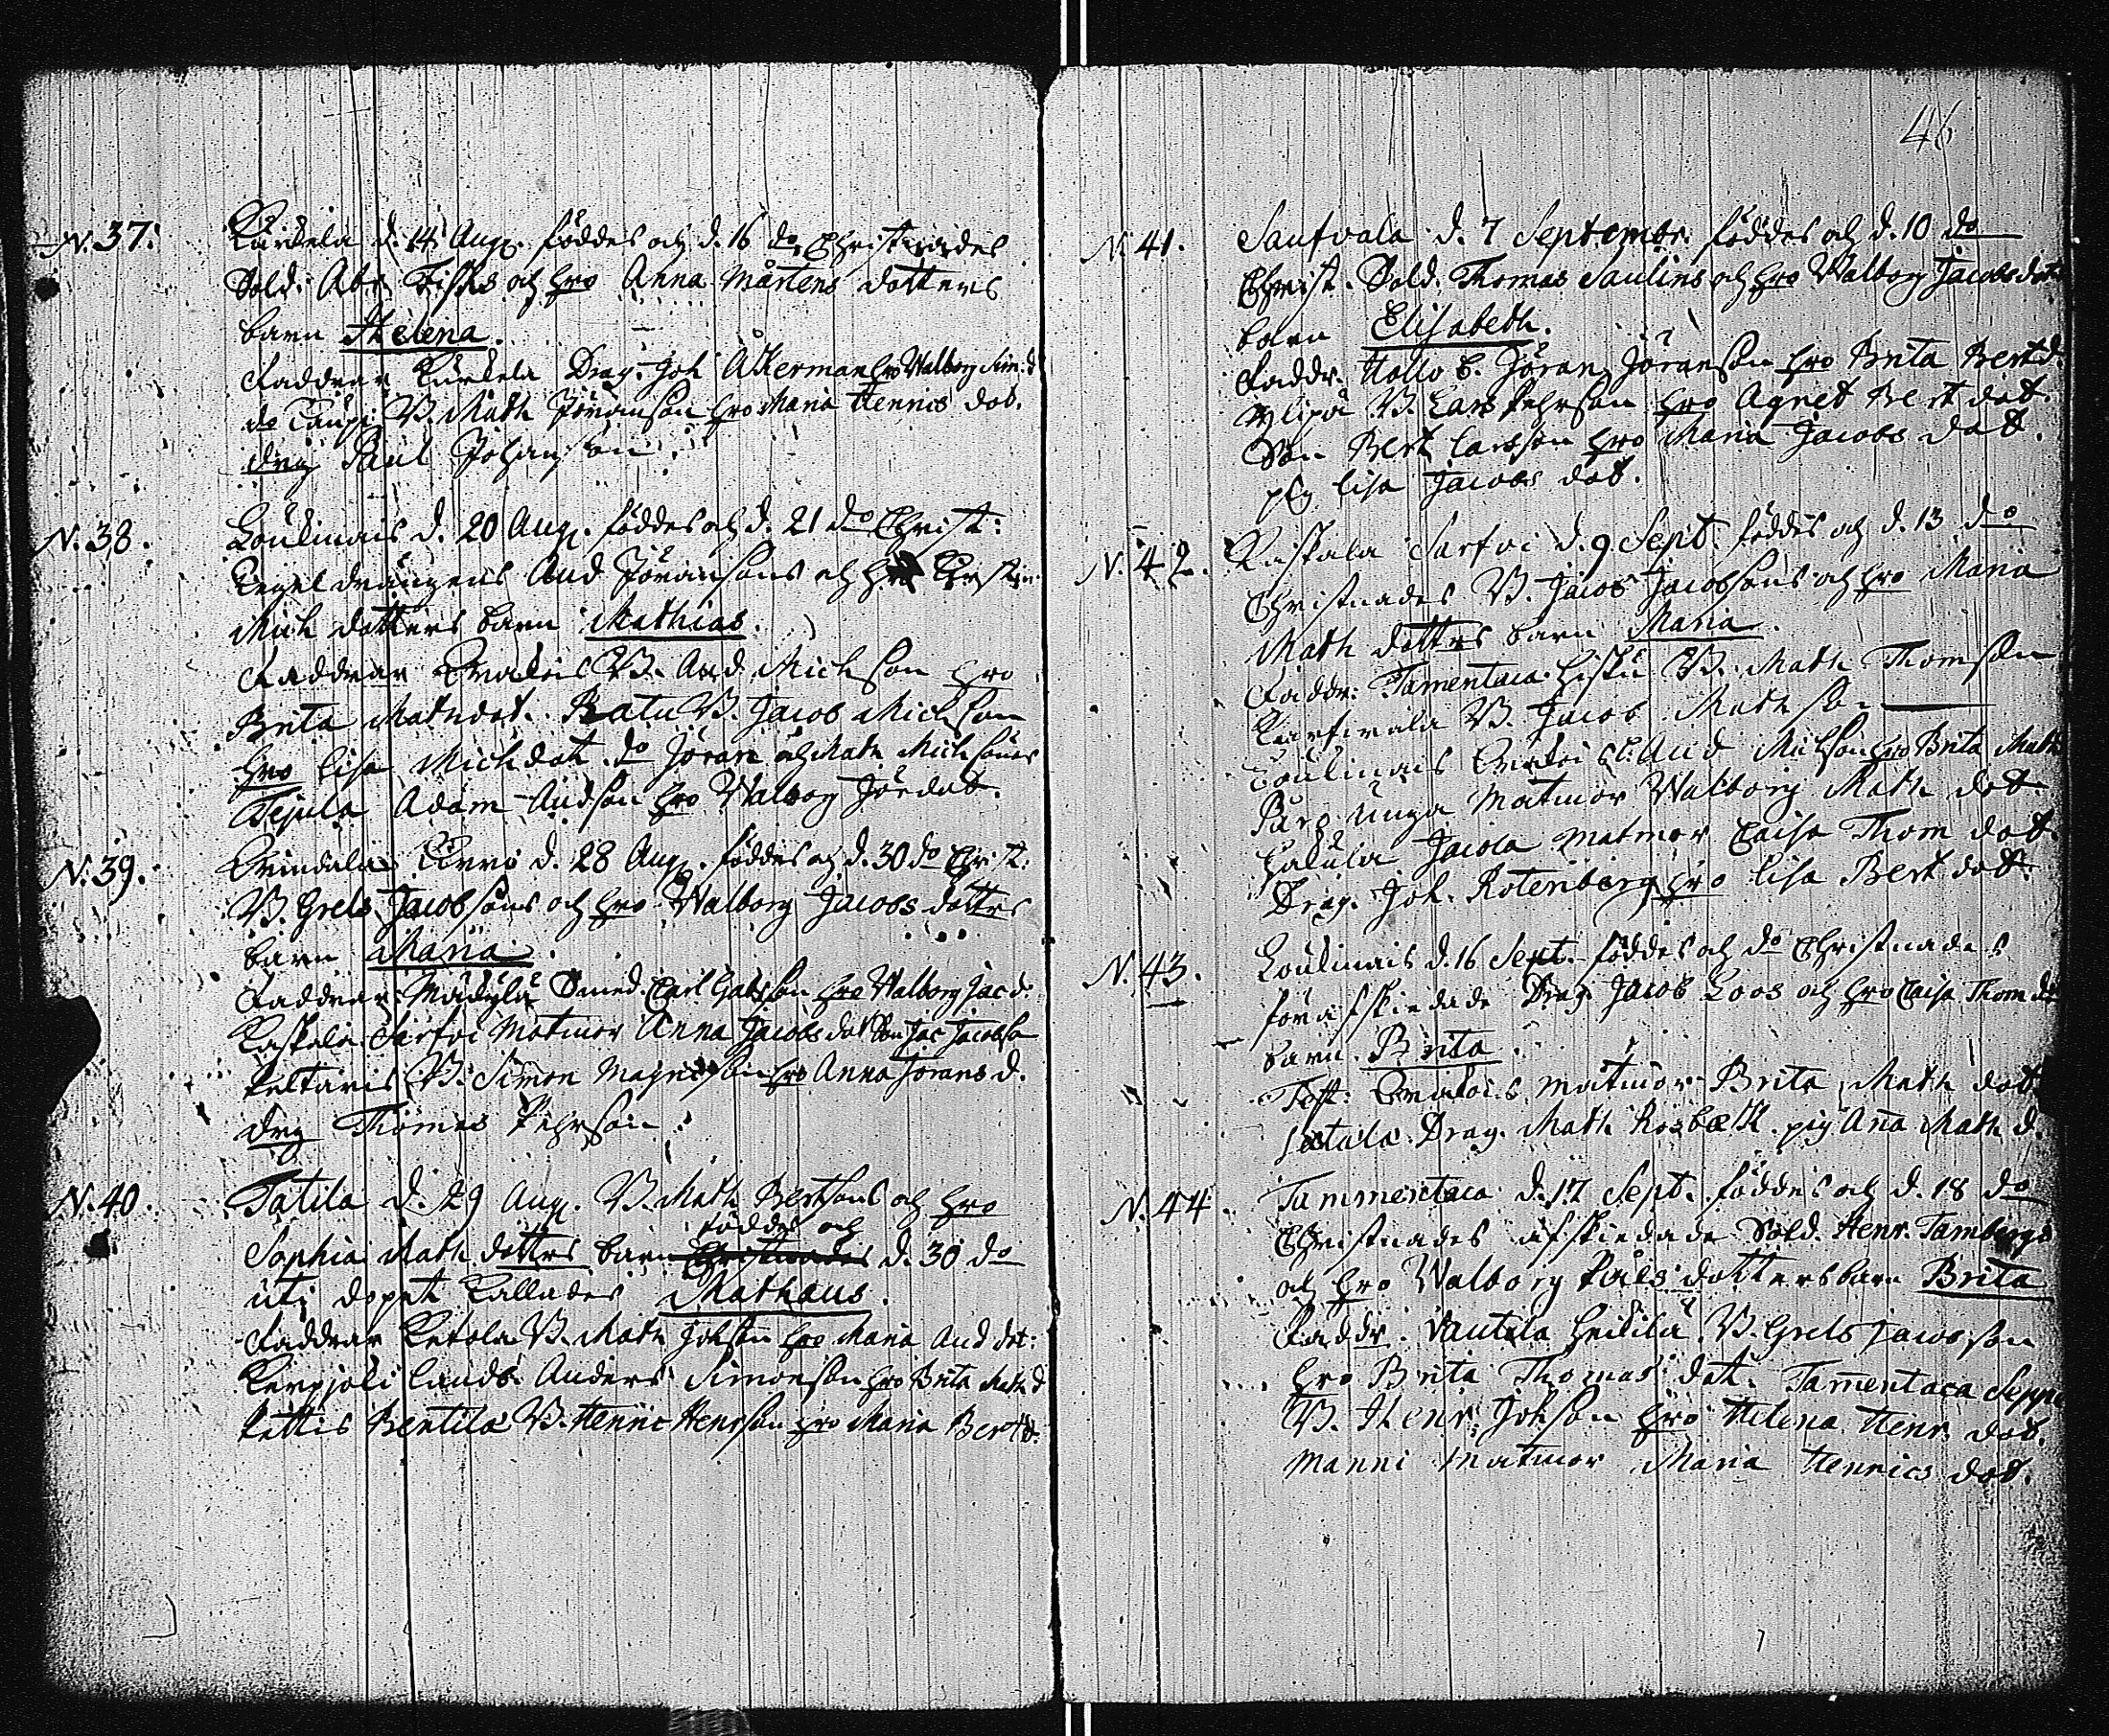 46
N. 37. Kurkela d. 14 Aug. föddes och d. 16 do Christnades
Sold. Abr. Fisks och hro Anna Mårtens dotters
barn Helena.
Faddrar Kurkela Drag. Joh Åkerman hro Walborg Sim. d
do Caupi B. Math Jöranson hro Maria Henrics dot.
dreg Paul Johanson.
N. 38. Koulimais d. 20 Aug. föddes och d. 21 do Christ:
Legeldrängens And Jöransons och Kirstin
Mich dotters barn Mathias.
Faddrar B. And Michson hro
Brita Mathdot. Ratu B. Jacob Michson
hro Lisa Michdot. do Jöran och Math Michsöner
Tejula Adam Andson hro Walborg Jördot.
N. 39. d. 28 Aug. föddes och d. 30 do Christ:
B. Grels Jacobsons och hro Walborg Jacobs dotters
barn Maria.
Faddrar: Mädylä Smed. Carl Gabrson hro Walborg Jac d.
Kaskala Sarfvi Matmor Anna Jacobs dot Son Jac Jacobson
Peltaris B. Simon Magnison hro Anna Jörans d.
dreg Thomas Pehrson.
N. 40. Tatila d. 29 Aug. B. Math Bertsons och hro
föddes och
Sophia Math dotters barn Christnades d. 30 do
uti dopet kallades Mathæus.
Faddrar Ketola B. Math Johson hro Maria And dot:
Lands. Anders Simonson hro Brita Math d
Pettis Bentilä B. Henric Henrson hro Maria Bert d.
N. 41. Saukvala d. 7 September föddes och d. 10 do
Christ. Sold. Thomas Saulins och hro Walborg Jacobs dot
barn Elisabeth.
Faddr. Hollo B. Jöran Jöranson hro Brita Bert d.
Ylipä B. Lars Pehrson hro Agnet Bert dot.
Son Bert Larsson hro Maria Jacobs dot.
pig Lisa Jacobs dot.
N. 42. Kaskala Sarfvi d. 9 Sept. föddes och d. 13 do
Christnades B. Jacob Jacobsons och hro Maria
Math dotters barn Maria.
Faddr: Tamentaca B. Math Thomson
B. Jacob Mathson
Koulimais And Michson hro Brita Math
unga Matmor Walborg Math dot
Jacola Matmor Caisa Thom dot.
Drag. Joh. Rotenberg hro Lisa Bert dot.
N. 43. Koulimais d. 16 Sept. föddes och do Christnades
förafskiedade Drag. Jacob Loos och hro Caisa Thom dot
barn Brita.
Test: matmor Brita Math dot
Drag. Math Rosbæck pig Ana Math d.
N. 44. Tammentaca d. 17 Sept. föddes och d. 18 do
Christnades afskiedade Sold. Henr. Tambergs
och hro Walborg Påls dotters barn Brita
Faddr. Vautila Heikilä B. Grels Jacobson
hro Brita Thomas dot. Tamentaca Seppä
B. Henr. Johson hro Helena Henr. dot.
Manni Matmor Maria Henrics dot.